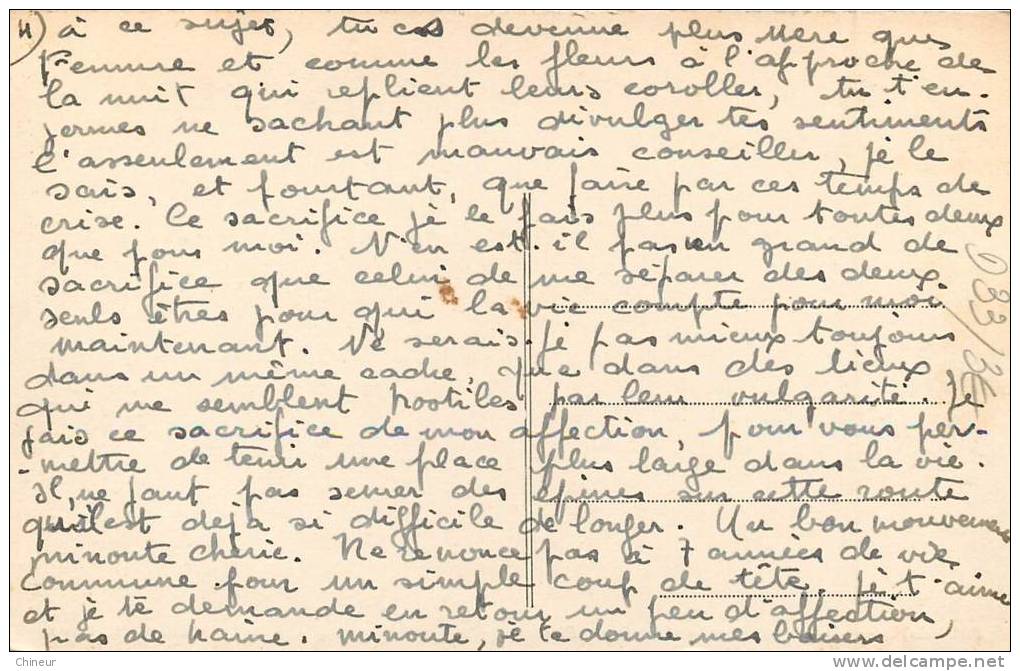 4) à ce sujet, tu es devenue plus Mère que
Femme et comme les fleurs à l'approche de
la nuit qui replient leurs corolles, tu t'en-
fermes ne sachant plus divulger tes sentiments
L'assenlement est mauvais conseiller, je le
sais, et pourtant, que faire par ces temps de
crise. Ce sacrifice je le fais plus pour toutes deux
que pour moi. N'en est-il pas un grand de
sacrifice que celui de me séparer des deux
seuls êtres pour qui la vie compte pour moi
maintenant. Ne serais-je pas mieux toujours
dans un même cadre, que dans des lieux
qui me semblent hostiles par leur vulgarité. Je
fais ce sacrifice de mon affection, pour vous per-
-mettre de tenir une place plus large dans la vie.
Il ne faut pas semer des épines sur cette route
qu'il est déjà si difficile de longer. Un bon mouvement
minoute chérie. Ne renonce pas à 7 années de vie
commune pour un simple coup de tête. je t'aime
et je te demande en retour un peu d'affection,
pas de haine. minoute, je te donne mes baisers
033/3E
Chineur
www.delcampe.net